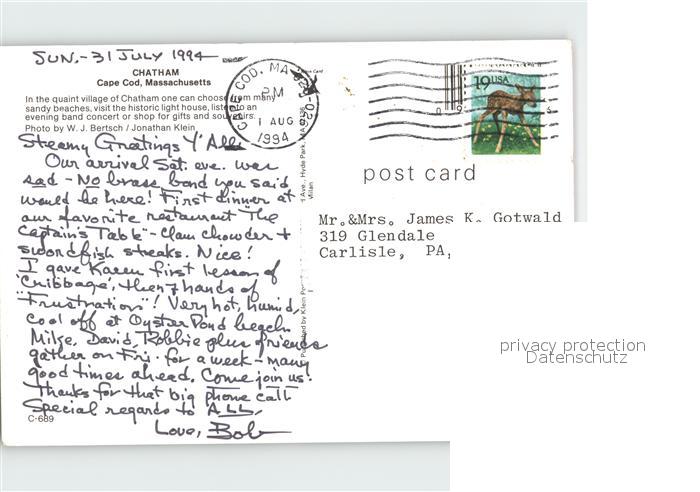 SUN.-31 JULY 1994
CHATHAM
Cape Cod, Massachusetts
In the quaint village of Chatham one can choose from many
sandy beaches, visit the historic light house, listen to an
evening band concert or shop for gifts and souvenirs.
Photo by W. J. Bertsch / Jonathan Klein
Steamy Greetings Y'All:
Our arrival Sat. eve. was
sad - NO brass band you said
would be here! First dinner at
our favorite restaurant "The
Captain's Table" - Clam chowder +
swordfish steaks. Nice!
I gave Karen first lesson of
'Cribbage', then 7 hands of
"Frustration"! Very hot, humid,
cool off at Oyster Pond beach.
Mike, David, Robbie plus friends
gather on Fri. for a week - many
good times ahead. Come join us.
Thanks for that big phone call
Special regards to ALL,
C-689
Love, Bob
CAPE COD, MA
PM
1 AUG
1994
19 USA
post card
Mr.&Mrs. James K. Gotwald
319 Glendale
Carlisle, PA,
Published by Klein
Ave., Hyde Park, MA
Milan
privacy protection
Datenschutz